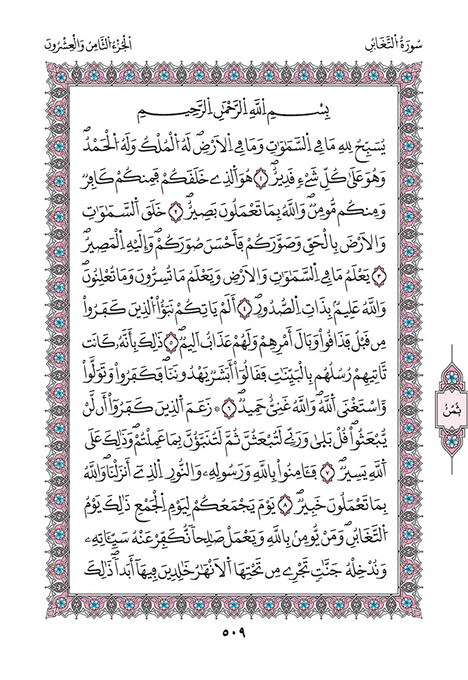 سُورَةُ التَّغَابُنِ
الجُزْءُ الثَّامِنُ وَالْعِشْرُونَ
بِسْمِ اِ۬للَّهِ اِ۬لرَّحْمَٰنِ اِ۬لرَّحِيمِ
يُسَبِّحُ لِلهِ مَا فِے اِ۬لسَّمَٰوَٰتِ وَمَا فِے اِ۬لَارْضِۖ لَهُ اُ۬لْمُلْكُ وَلَهُ اُ۬لْحَمْدُۖ
وَهُوَ عَلَىٰ كُلِّ شَےْءٖ قَدِيرٌۖ ١ هُوَ اَ۬لذِے خَلَقَكُمْ فَمِنكُمْ كَافِرٞ
وَمِنكُم مُّومِنٞۖ وَاللَّهُ بِمَا تَعْمَلُونَ بَصِيرٌۖ ٢ خَلَقَ اَ۬لسَّمَٰوَٰتِ
وَالَارْضَ بِالْحَقِّ وَصَوَّرَكُمْ فَأَحْسَنَ صُوَرَكُمْۖ وَإِلَيْهِ اِ۬لْمَصِيرُۖ
٣ يَعْلَمُ مَا فِے اِ۬لسَّمَٰوَٰتِ وَالَارْضِ وَيَعْلَمُ مَا تُسِرُّونَ وَمَا تُعْلِنُونَۖ
وَاللَّهُ عَلِيمُۢ بِذَاتِ اِ۬لصُّدُورِۖ ٤ أَلَمْ يَاتِكُمْ نَبَؤُاْ اُ۬لذِينَ كَفَرُواْ
مِن قَبْلُ فَذَاقُواْ وَبَالَ أَمْرِهِمْ وَلَهُمْ عَذَابٌ اَلِيمٞۖ ٥ ذَٰلِكَ بِأَنَّهُۥ كَانَت
تَّاتِيهِمْ رُسُلُهُم بِالْبَيِّنَٰتِ فَقَالُوٓاْ أَبَشَرٞ يَهْدُونَنَاۖ فَكَفَرُواْ وَتَوَلَّواْۖ
وَّاسْتَغْنَى اَ۬للَّهُۖ وَاللَّهُ غَنِيٌّ حَمِيدٞۖ ٦ ۞ زَعَمَ اَ۬لذِينَ كَفَرُوٓاْ أَن لَّنْ
يُّبْعَثُواْۖ قُلْ بَلَىٰ وَرَبِّے لَتُبْعَثُنَّ ثُمَّ لَتُنَبَّؤُنَّ بِمَا عَمِلْتُمْۖ وَذَٰلِكَ عَلَى
اَ۬للَّهِ يَسِيرٞۖ ٧ فَـَٔامِنُواْ بِاللَّهِ وَرَسُولِهِۦ وَالنُّورِ اِ۬لذِےٓ أَنزَلْنَاۖ وَاللَّهُ
بِمَا تَعْمَلُونَ خَبِيرٞۖ ٨ يَوْمَ يَجْمَعُكُمْ لِيَوْمِ اِ۬لْجَمْعِ ذَٰلِكَ يَوْمُ
اُ۬لتَّغَابُنِۖ وَمَنْ يُّومِنۢ بِاللَّهِ وَيَعْمَلْ صَٰلِحاٗ نُّكَفِّرْ عَنْهُ سَيِّـَٔاتِهِۦ
وَنُدْخِلْهُ جَنَّٰتٖ تَجْرِے مِن تَحْتِهَا اَ۬لَانْهَٰرُ خَٰلِدِينَ فِيهَآ أَبَداٗۖ ذَٰلِكَ
ثُمُن
٥٠٩